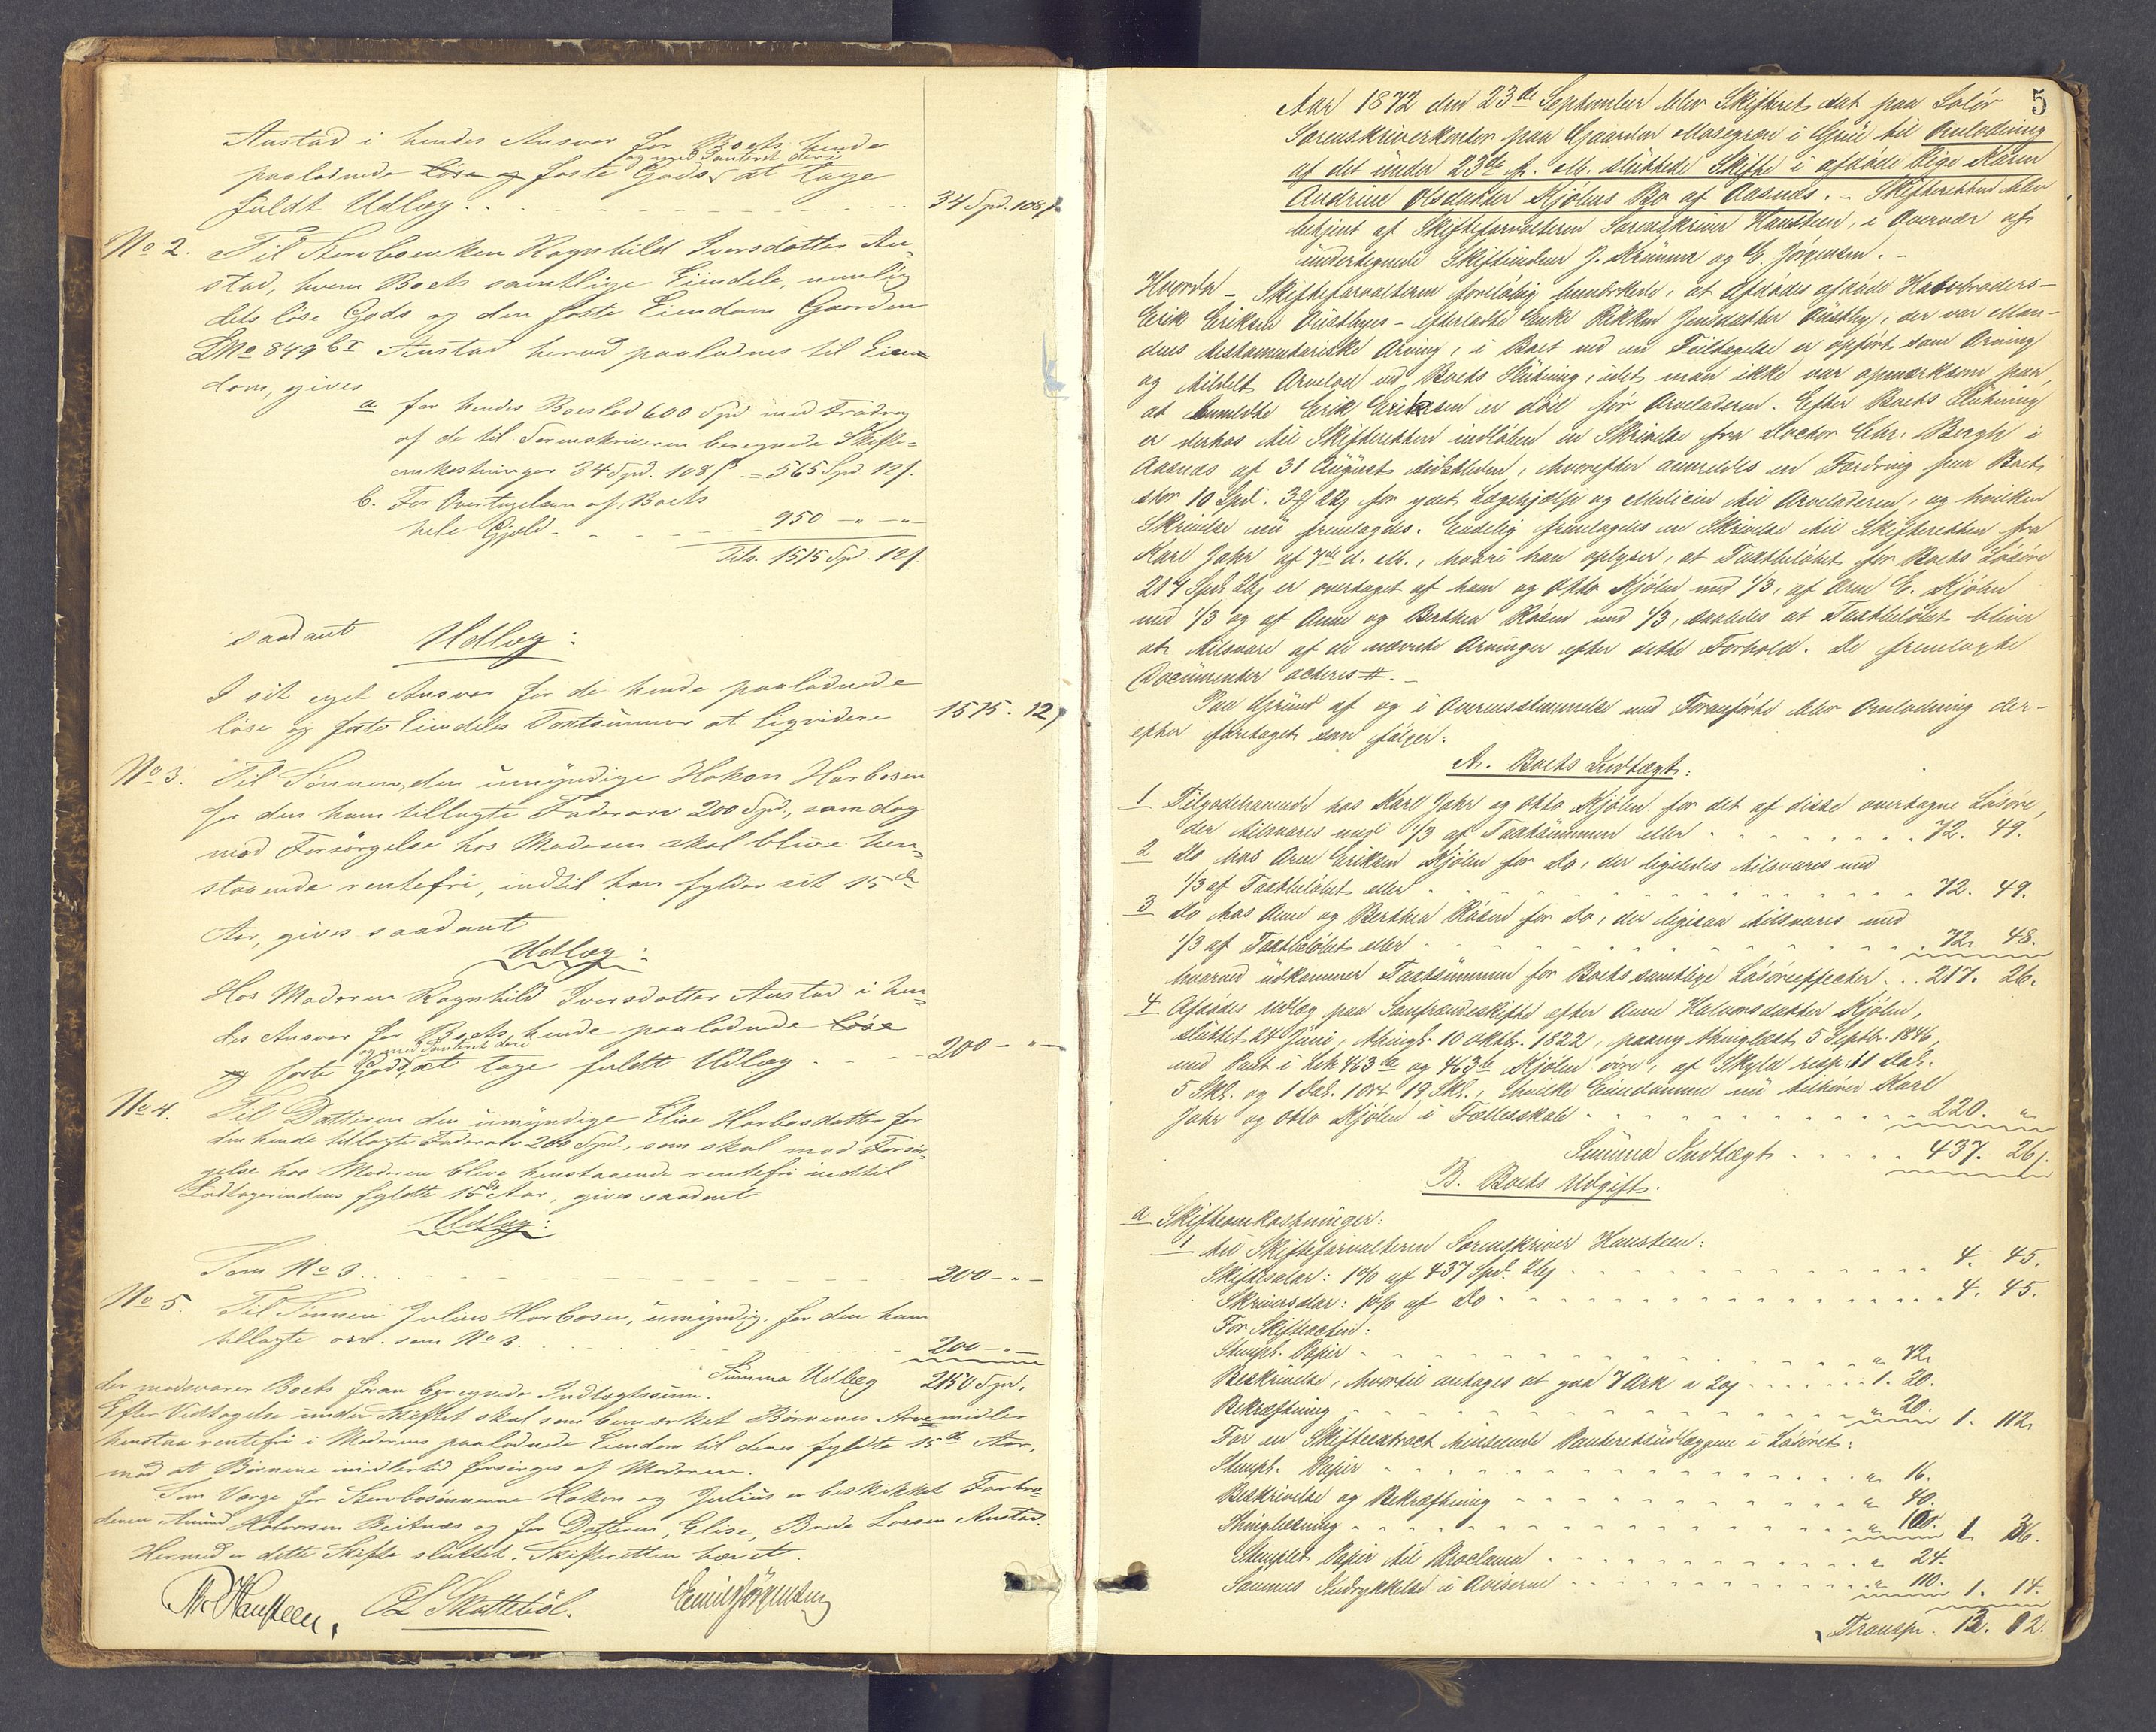 Austad i hendes Ansvar for Boets hende
paalodnede løse og faste Gods og med Panteret deri at tage
fuldt Udlæg . . . 34 Spd. 108 ß
No 2. Til Stervboenken Ragnhild Iversdatter Au-
stad, hvem Boets samtlige Eiendele, nemlig
dets løse Gods og den faste Eiendom Gaarden
LNo 849 b I Austad herved paalodnes til Eien-
dom, gives
a for hendes Boeslod 600 Spd med Fradrag
af de til Sorenskriveren beregnede Skifte-
omkostninger 34 Spd. 108 ß = 565 Spd. 12 ß.
b. For Overtagelsen af Boets
hele Gjeld . . . 950 - " - "
Tils. 1515 Spd. 12 ß.
saadant Udlæg:
I sit eget Ansvar for de hende paalodnede
løse og faste Eiendeles Taxtsummer at liqvidere 1515. 12 ß
No 3. Til Sønnen, den umyndige Hakon Harbosen
for den ham tillagte Fadrearv 200 Spd., som dog
mod Forsørgelse hos Moderen skal blive hen-
staaende rentefri, indtil han fylder sit 15de
Aar, gives saadant
Udlæg:
Hos Moderen Ragnhild Iversdatter Austad i hen-
des Ansvar for Boets hende paalodnede løse
og faste Gods, og med Panteret deri at tage fuldt Udlæg . . . 200 - " -
No 4. Til Datteren den umyndige Elise Harbosdatter for
den hende tillagte Fadrearv 200 Spd., som skal mod Forsør-
gelse hos Moderen blive henstaaende rentefri indtil
Lodtagerindens fyldte 15de Aar, gives saadant
Udlæg:
Som No 3 . . . 200 - " -
No 5. Til Sønnen Julius Harbosen, umyndig, for den ham
tillagte Arv. som No 3. . . . 200 - " -
Summa Udlæg 2150 Spd.
der modsvarer Boets foran beregnede Indtægtssum.
Efter Vedtagelse under Skiftet skal som bemærket Børnenes Arvemidler
henstaa rentefri i Moderens paalodnede Eiendom til deres fyldte 15de Aar,
mod at Børnene imidlertid forsørges af Moderen.
Som Værge for Stervbosønnerne Hakon og Julius er beskikket Farbro-
deren Amund Halvorsen Beitnæs og for Datteren, Elise, Brede Larsen Austad.
Hermed er dette Skifte sluttet. Skifteretten hævet.
Hansteen. O L Skattebøl. Emil Jørgensen
5
Aar 1872 den 23de September blev Skifteret sat paa Solør
Sorenskriverkontor paa Gaarden Masegron i Grue til Omlodning
af det under 23de f. M. sluttede Skifte i afdøde Pige Karen
Andrine Olsdatter Kjølens Bo af Aasnes. - Skifteretten blev
betjent af Skifteforvalteren Sorenskriver Hansteen, i Overvær af
undertegnede Skiftevidner J. Krumm og E. Jørgensen. -
Hvorda - Skifteforvalteren foreløbig bemærkede, at Afdødes afdøde Halvbroders -
Erik Eriksen Østbyes - efterladte Enke Rikken Jensdatter Østby, der var Man-
dens testamentariske Arving, i Boet ved en Feiltagelse er opført som Arving
og tildelt Arvelod ved Boets Slutning, idet man ikke var opmærksom paa,
at bemeldte Erik Eriksen er død før Arveladeren. Efter Boets Slutning
er derhos til Skifteretten indløben en Skrivelse fra Doctor Chr. Bergh i
Aasnæs af 31 August sidstleden, hvorefter anmeldes en Fordring paa Boet
stor 10 Spd. 3 22 ß for ydet Lægehjælp og Medicin til Arveladeren, og hvilken
Skrivelse nu fremlagdes. Endelig fremlagdes en Skrivelse til Skifteretten fra
Karl Jahr af 7de d. M., hvori han oplyser, at Taxtbeløbet for Boets Løsøre
217 Spd. 26 ß er overtaget af ham og Otto Kjølen med 1/3, af Arne E. Kjølen
med 1/3 og af Anne og Berthea Røsen med 1/3, saaledes at Taxtbeløbet bliver
at tilsvare af de nævnte Arvinger efter dette Forhold. De fremlagte
Documenter acteres #. -
Paa Grund af og i Overensstemmelse med Foranførte blev Omlodning der-
efter foretaget som følger:
A. Boets Indtægt:
1 Tilgodehavende hos Karl Jahr og Otto Kjølen for det af disse overtagne Løsøre,
der tilsvares med 1/3 af Taxtsummen eller . . . 72. 49.
2 Do hos Arne Eriksen Kjølen for Do, der ligeledes tilsvares med
1/3 af Taxtbeløbet eller . . . 72. 49.
3 Do hos Anne og Berthea Røsen for Do, der ligesaa tilsvares med
1/3 af Taxtbeløbet eller . . . 72. 48.
hvorved udkommer Taxtsummen for Boets samtlige Løsøreeffecter . . . 217. 26.
4 Afdødes Udlæg paa Samfrændeskifte efter Anne Halvorsdatter Kjølen,
sluttet 24 Juni, thingl. 10 Oktbr. 1822, paany thinglæst 5 Septbr. 1846,
med Pant i LNo 463 a og 463 b Kjølen øvre, af Skyld resp. 11 Dal.
5 Skl. og 1 Dal. 1 Ort 19 Skl., hvilke Eiendomme nu tilhører Karl
Jahr og Otto Kjølen i Fællesskab . . . 220. "
Summa Indtægt . . . 437. 26 ß.
B. Boets Udgift.
a Skifteomkostninger:
1 til Skifteforvalteren Sorenskriver Hansteen:
Skiftesalær: 1 % af 437 Spd. 26 ß . . . 4. 45.
Skriversalær: 1 % af Do . . . 4. 45.
For Skifteacten:
Stempl. Papir . . . " 72
Beskrivelse, hvortil antages at gaa 7 Ark a 20 ß . . . 1. 20.
Bekræftning . . . " 20. 1. 112
For en Skifteextract hensende Panteretsudlæggene i Løsøret:
Stempl. Papir . . . " 16.
Beskrivelse og Bekræftning . . . " 40.
Thinglæsning . . . " 100. 1. 36.
Stemplet Papir til Proclama . . . " 24.
Sammes Indrykkelse i Aviserne . . . " 110. 1. 14.
Transp. 13. 12.